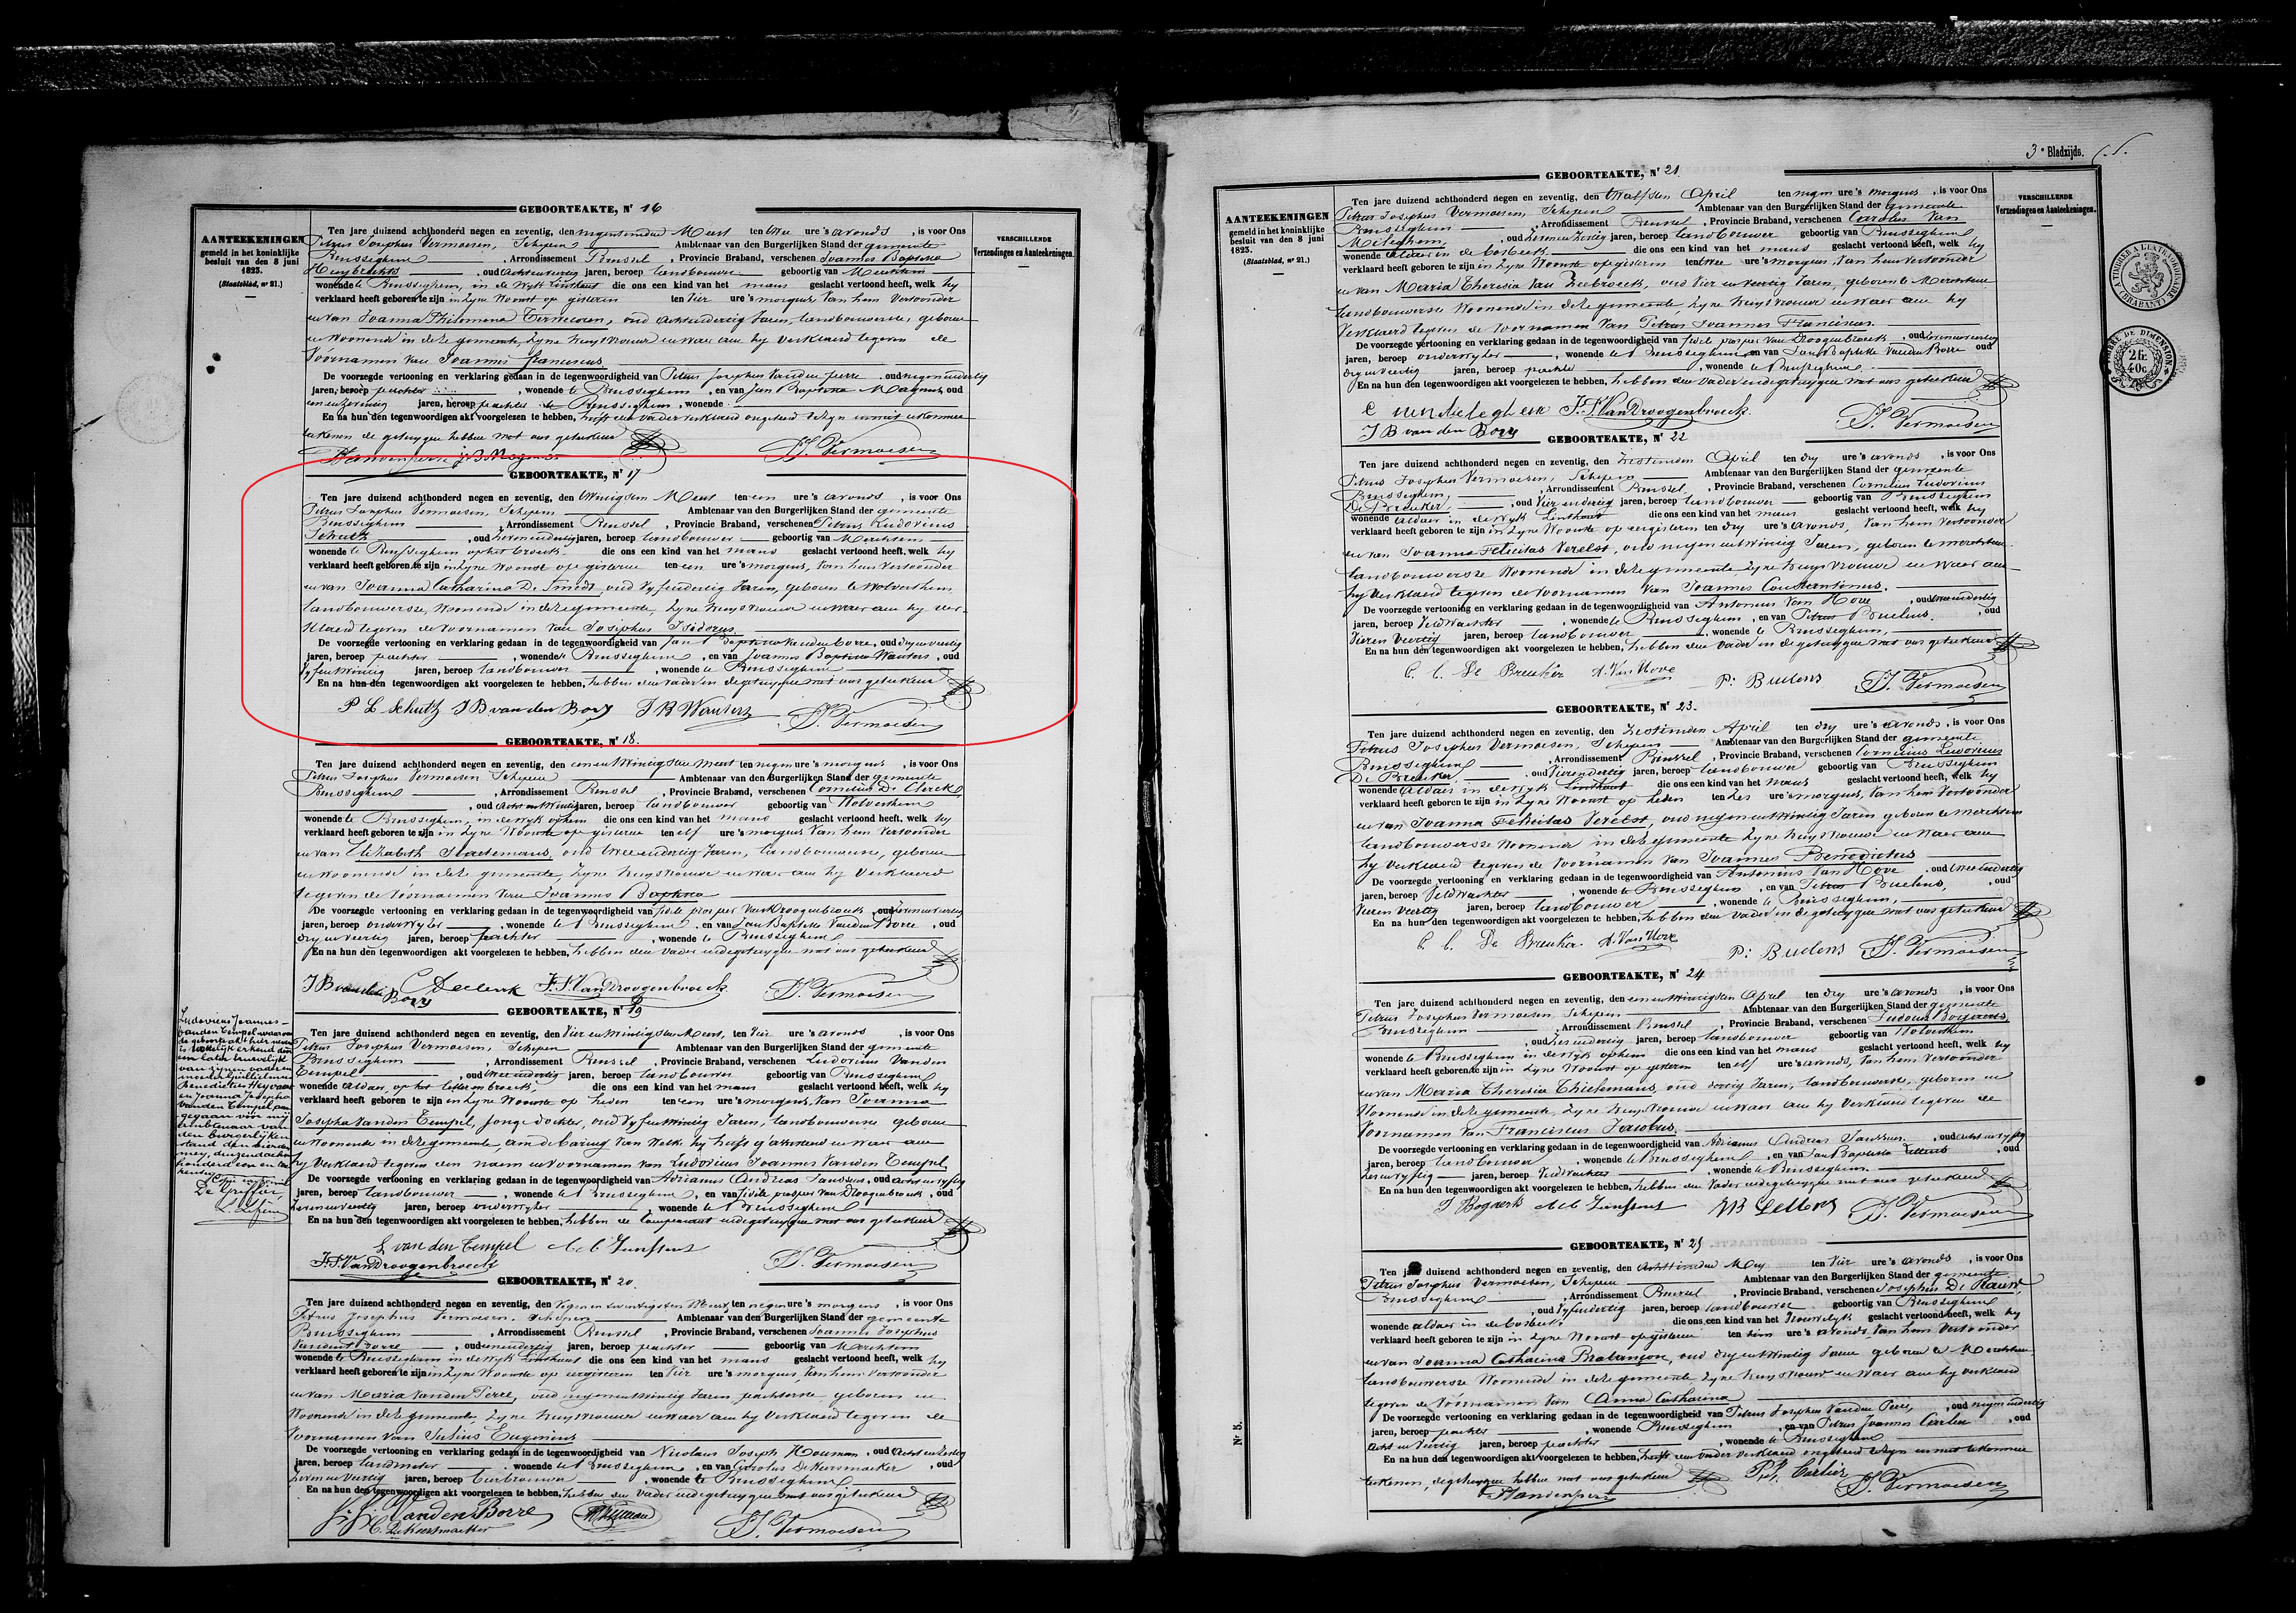 GEBOORTEAKTE, Nr 16
AANTEEKENINGEN
gemeld in het koninklijke
besluit van den 8 juni
1823.
(Staatsblad, nr 21.)
VERSCHILLENDE
Verzendingen en Aanteekeningen.
Ten jare duizend achthonderd negen en zeventig, den negentienden Meert ten twee ure 's avonds, is voor Ons
Petrus Josephus Vermoesen, Schepen Ambtenaar van den Burgerlijken Stand der gemeente
Brusseghem, Arrondissement Brussel, Provincie Braband, verschenen Joannes Baptista
Huybrechts, oud jaren, beroep landbouwer geboortig van Merchtem
wonende te Brusseghem, in de Wyk Linthout die ons een kind van het mans geslacht vertoond heeft, welk hy
verklaard heeft geboren te zijn in zyne Woonst op gisteren ten vier ure 's morgens, Van hem Vertoonder
en van Joanna Philomena oud Jaren, landbouwerse, geboren
en Woonende in deze gemeente, zyne huysvrouw en waer aen hy Verklaerd te geven de
Voornamen van Joannes franciscus.
De voorzegde vertooning en verklaring gedaan in de tegenwoordigheid van Petrus Josephus Vanden perre, oud negenendertig
jaren, beroep pachter, wonende te Brusseghem, en van Jan Baptista Magnus, oud
jaren, beroep pachter te Brusseghem, wonende
En na hun den tegenwoordigen akt voorgelezen te hebben, heeft den vader verklaerd ongeleerd te zyn en niet te konnen
teekenen de getuygen hebben met ons geteekend
P J Vermoesen
GEBOORTEAKTE, Nr 17
Ten jare duizend achthonderd negen en zeventig, den twintigsten Meert ten een ure 's avonds, is voor Ons
Petrus Josephus Vermoesen, Schepen Ambtenaar van den Burgerlijken Stand der gemeente
Brusseghem, Arrondissement Brussel, Provincie Braband, verschenen Petrus Ludovicus
Schutz, oud zevenendertig jaren, beroep landbouwer geboortig van Merchtem
wonende te Brusseghem op het broeck die ons een kind van het mans geslacht vertoond heeft, welk hy
verklaard heeft geboren te zijn in zyne Woonst op gisteren ten een ure 's morgens, Van hem Vertoonder
en van Joanna Catharina De Smedt, oud Vyfendertig Jaren, geboren te Wolverthem
landbouwersse, Woonende in deze gemeente, zyne huysvrouw en waer aen hy Ver-
klaerd te geven de Voornamen van Josephus Isidorus.
De voorzegde vertooning en verklaring gedaan in de tegenwoordigheid van Jan Baptista Vanden borre, oud dryenveertig
jaren, beroep pachter, wonende te Brusseghem, en van Joannes Baptista Wauters, oud
Vyfentwintig jaren, beroep landbouwer, wonende te Brusseghem
En na hun den tegenwoordigen akt voorgelezen te hebben, hebben den vader en de getuygen met ons geteekend
P L Schutz J B van den Bory J B Wauters P J Vermoesen
GEBOORTEAKTE, Nr 18.
Ten jare duizend achthonderd negen en zeventig, den eenentwintigsten Meert ten negen ure 's morgens, is voor Ons
Petrus Josephus Vermoesen Schepen Ambtenaar van den Burgerlijken Stand der gemeente
Brusseghem, Arrondissement Brussel, Provincie Braband, verschenen Cornelius De Clerck
, oud achtentwintig jaren, beroep landbouwer geboortig van Wolverthem
wonende te Brusseghem, in de Wyk ophem die ons een kind van het mans geslacht vertoond heeft, welk hy
verklaard heeft geboren te zijn in zyne Woonste op gisteren ten elf ure 's morgens Van hem Vertoonder
en van Elizabeth oud tweeendertig Jaren, landbouwersse, geboren
en Woonende in deze gemeente, zyne huysvrouw en waer aen hy Verklaerd
te geven de Voornamen van Joannes Baptista
De voorzegde vertooning en verklaring gedaan in de tegenwoordigheid van fidele prosper Van Droogenbroeck, oud zevenenveertig
jaren, beroep onderwyzer, wonende te Brusseghem, en van Jan Baptista Vanden Borre, oud
dryenveertig jaren, beroep pachter, wonende te Brusseghem
En na hun den tegenwoordigen akt voorgelezen te hebben, hebben den vader en de getuygen met ons geteekend
J B van den Bory C Declerck F. P. Van Droogenbroeck P J Vermoesen
GEBOORTEAKTE, Nr 19
Ten jare duizend achthonderd negen en zeventig, den Vier en twintigsten Meert, ten Vier ure 's avonds, is voor Ons
Petrus Josephus Vermoesen, Schepen Ambtenaar van den Burgerlijken Stand der gemeente
Brusseghem, Arrondissement Brussel, Provincie Braband, verschenen Ludovicus Vanden
Tempel, oud tweeendertig jaren, beroep landbouwer geboortig van Brusseghem
wonende aldaer, op het die ons een kind van het mans geslacht vertoond heeft, welk hy
verklaard heeft geboren te zijn in zyne Woonst op heden ten een ure 's morgens, Van Joanna
Josepha Vanden Tempel, Jonge dochter, oud Vyfentwintig Jaren, landbouwersse geboren
en Woonende in deze gemeente, aen de baring Van Welke hy heeft geassisteerd en waer aen
hy Verklaerd te geven den naam en Voornamen van Ludovicus Joannes Vanden Tempel
De voorzegde vertooning en verklaring gedaan in de tegenwoordigheid van Adrianus Andreas Janssens, oud achtenvyftig
jaren, beroep landbouwer, wonende te Brusseghem, en van fidele prosper Van Droogenbroeck, oud
Zevenenveertig jaren, beroep onderwyzer, wonende te Brusseghem
En na hun den tegenwoordigen akt voorgelezen te hebben, hebben de Comparant en de getuygen met ons geteekend
L van den Tempel
F. P. Van Droogenbroeck P J Vermoesen
GEBOORTEAKTE, Nr 20.
Ten jare duizend achthonderd negen en zeventig, den Zeven en twintigsten Meert, ten negen ure 's morgens, is voor Ons
Petrus Josephus Vermoesen, Schepen Ambtenaar van den Burgerlijken Stand der gemeente
Brusseghem, Arrondissement Brussel, Provincie Braband, verschenen Joannes Josephus
Vanden Borre, oud jaren, beroep pachter geboortig van Merchtem
wonende te Brusseghem in de Wyk Linthout die ons een kind van het mans geslacht vertoond heeft, welk hy
verklaard heeft geboren te zijn in zyne Woonst op eergisteren ten Vier ure 's morgens, Van hem Vertoonder
en van Maria Vanden Perre, oud negenentwintig Jaren pachterse, geboren en
Woonende in deze gemeente, zyne huysvrouw en waer aen hy Verklaerd te geven de
Voornamen Van Julius Eugenius
De voorzegde vertooning en verklaring gedaan in de tegenwoordigheid van Nicolaus Joseph Houman, oud
jaren, beroep landmeter, wonende te Brusseghem, en van Carolus De Keersmaeker, oud
Zevenenveertig jaren, beroep, wonende te Brusseghem
En na hun den tegenwoordigen akt voorgelezen te hebben, hebben den vader en de getuygen met ons geteekend
J. J. Vanden Borre
C. De Keersmaeker P J Vermoesen
3e Bladzijde.
GEBOORTEAKTE, Nr 21.
AANTEEKENINGEN
gemeld in het koninklijke
besluit van den 8 juni
1823.
(Staatsblad, nr 21.)
VERSCHILLENDE
Verzendingen en Aanteekeningen.
Ten jare duizend achthonderd negen en zeventig, den twelfsten April ten negen ure 's morgens, is voor Ons
Petrus Josephus Vermoesen, Schepen Ambtenaar van den Burgerlijken Stand der gemeente
Brusseghem, Arrondissement Brussel, Provincie Braband, verschenen Carolus Van
Mileghem, oud jaren, beroep landbouwer geboortig van Brusseghem
wonende aldaer in de bosbeek die ons een kind van het mans geslacht vertoond heeft, welk hy
verklaard heeft geboren te zijn in zyne Woonste op gisteren ten twee ure 's morgens, Van hem Vertoonder
en van Maria Theresia Van oud Vier en Veertig Jaren, geboren te Merchtem
landbouwersse Woonende in deze gemeente, zyne huysvrouw en waer aen hy
Verklaerd te geven de Voornamen Van Petrus Joannes Franciscus.
De voorzegde vertooning en verklaring gedaan in de tegenwoordigheid van fidele prosper Van Droogenbroeck, oud zevenenveertig
jaren, beroep onderwyzer, wonende te Brusseghem en van Jan Baptista Vanden Borre oud
dryenveertig jaren, beroep pachter, wonende te Brusseghem
En na hun den tegenwoordigen akt voorgelezen te hebben, hebben den vader en de getuygen met ons geteekend
F. P. Van Droogenbroeck
J B van den Bory P J Vermoesen
GEBOORTEAKTE, Nr 22
Ten jare duizend achthonderd negen en zeventig, den zestienden April ten dry ure 's avonds, is voor Ons
Petrus Josephus Vermoesen, Schepen Ambtenaar van den Burgerlijken Stand der gemeente
Brusseghem, Arrondissement Brussel, Provincie Braband, verschenen Cornelius Ludovicus
De Breuker, oud Vierendertig jaren, beroep landbouwer geboortig van Brusseghem
wonende aldaer in de Wyk Linthout die ons een kind van het mans geslacht vertoond heeft, welk hy
verklaard heeft geboren te zijn in zyne Woonste op eergisteren ten dry ure 's avonds, Van hem Vertoonder
en van Joanna Felicitas Verelst, oud negenentwintig Jaren, geboren te Merchtem
landbouwersse Woonende in deze gemeente zyne huys Vrouwe en Waer aen
hy Verklaerd te geven de Voornamen Van Joannes Constantinus.
De voorzegde vertooning en verklaring gedaan in de tegenwoordigheid van Antonius Van Hove, oud tweeendertig
jaren, beroep Veldwachter, wonende te Brusseghem, en van Petrus Buelens, oud
Vieren Veertig jaren, beroep landbouwer, wonende te Brusseghem,
En na hun den tegenwoordigen akt voorgelezen te hebben, hebben den Vader en de getuygen met ons geteekend
C. L. De Breuker A. Van Hove P: Buelens P J Vermoesen
GEBOORTEAKTE, Nr 23.
Ten jare duizend achthonderd negen en zeventig, den zestienden April ten dry ure 's avonds, is voor Ons
Petrus Josephus Vermoesen, Schepen Ambtenaar van den Burgerlijken Stand der gemeente
Brusseghem, Arrondissement Brussel, Provincie Braband, verschenen Cornelius Ludovicus
De Breuker, oud Vierendertig jaren, beroep landbouwer geboortig van Brusseghem
wonende aldaer in de Wyk Linthout die ons een kind van het mans geslacht vertoond heeft, welk hy
verklaard heeft geboren te zijn in zyne Woonst op heden ten zes ure 's morgens, Van hem Vertoonder
en van Joanna Felicitas Verelst, oud negenentwintig Jaren geboren te Merchtem
landbouwersse Woonende in deze gemeente zyne huysvrouwe en Waer aen
hy Verklaerd te geven de Voornamen Van Joannes Benedictus
De voorzegde vertooning en verklaring gedaan in de tegenwoordigheid van Antonius Van Hove, oud tweeendertig
jaren, beroep Veldwachter, wonende te Brusseghem, en van Petrus Buelens, oud
Vieren Veertig jaren, beroep landbouwer, wonende te Brusseghem,
En na hun den tegenwoordigen akt voorgelezen te hebben, hebben den Vader en de getuygen met ons geteekend
C. L. De Breuker. A. Van Hove P: Buelens P J Vermoesen
GEBOORTEAKTE, Nr 24
Ten jare duizend achthonderd negen en zeventig, den eenentwintigsten April ten dry ure 's avonds, is voor Ons
Petrus Josephus Vermoesen, Schepen Ambtenaar van den Burgerlijken Stand der gemeente
Brusseghem, Arrondissement Brussel, Provincie Braband, verschenen
, oud jaren, beroep landbouwer geboortig van Wolverthem
wonende te Brusseghem in de Wyk ophem die ons een kind van het mans geslacht vertoond heeft, welk hy
verklaard heeft geboren te zijn in zyne Woonst op gisteren ten elf ure 's avonds, Van hem Vertoonder
en van Maria Theresia Thielemans, oud dertig Jaren, landbouwersse, geboren en
Woonende in deze gemeente, zyne huysvrouwe en Waer aen hy Verklaerd te geven de
Voornamen Van Franciscus Jacobus.
De voorzegde vertooning en verklaring gedaan in de tegenwoordigheid van Adrianus Andreas Janssens, oud achtenvyftig
jaren, beroep landbouwer, wonende te Brusseghem, en van Jan Baptista, oud
zesenvyftig jaren, beroep Veldwachter, wonende te Brusseghem.
En na hun den tegenwoordigen akt voorgelezen te hebben, hebben den Vader en de getuygen met ons geteekend
P J Vermoesen
GEBOORTEAKTE, Nr 25
Ten jare duizend achthonderd negen en zeventig, den achttienden Mey ten Vier ure 's avonds, is voor Ons
Petrus Josephus Vermoesen, Schepen Ambtenaar van den Burgerlijken Stand der gemeente
Brusseghem, Arrondissement Brussel, Provincie Braband, verschenen Josephus De
, oud Vyfendertig jaren, beroep landbouwer geboortig van Brusseghem
wonende aldaer in de bosbeek die ons een kind van het Vrouwelyk geslacht vertoond heeft, welk hy
verklaard heeft geboren te zijn in zyne Woonst op gisteren ten tien ure 's avonds Van hem Vertoonder
en van Joanna Catharina Brabançon, oud dryentwintig Jaren geboren te Merchtem
landbouwersse Woonende in deze gemeente, zyne huysvrouw en Waer aen hy Verklaerd
te geven de Voornamen Van Anna Catharina
De voorzegde vertooning en verklaring gedaan in de tegenwoordigheid van Petrus Josephus Vanden Perre, oud negenendertig
jaren, beroep pachter, wonende Brusseghem, en van Petrus Joannes Carlier, oud
acht en Veertig jaren, beroep pachter, wonende te Brusseghem
En na hun den tegenwoordigen akt voorgelezen te hebben, heeft den Vader verklaerd ongeleerd te zyn en niet te konnen
teekenen, de getuygen hebben met ons geteekend
P. J. Carlier P J Vermoesen
TIMBRE A L'EXTRAORDINAIRE
(BRABANT)
TIMBRE DE DIMENSION
2fr.
40c
Nr 5.